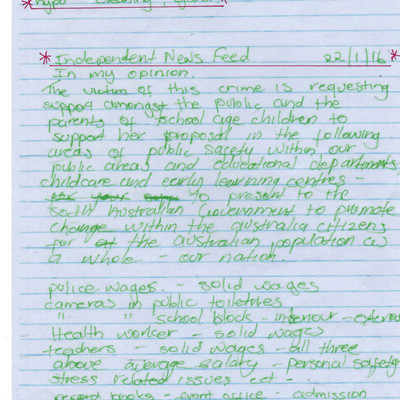 hypo cleaning,
* Independent News Feed 22/1/16 *
In my opinion.
The victim of this crime is requesting
support amongst the public and the
parents of school age children to
support her proposal in the following
areas of public safety within our
public areas and educational departments,
childcare and early learning centres -
to present to the
South Australian Government to promote
change within the australia citizens
for the australian population as
a whole - our nation.
police wages. - solid wages
cameras in public toiletries
" " school block - interiour - exteriour
Health worker - solid wages
teachers - solid wages - all three
above average salary - personal safety
stress related issues ect -
record books - front office - admission